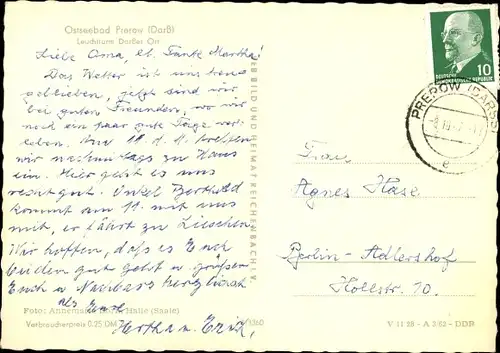 Ostseebad Prerow (Darß)
Leuchtturm Darßer Ort
Liebe Oma, lb. Tante Martha!
Das Wetter ist uns treu
geblieben, jetzt sind wir
bei guten Freunden, wo wir
noch ein paar gute Tage ver-
leben. Am 11. d. M. treffen
wir nachmittags zu Haus
ein. Hier geht es uns
recht gut. Onkel Berthold
kommt am 11. mit uns
mit, er fährt zu Lieschen.
Wir hoffen, daß es Euch
beiden gut geht u. grüßen
Euch u. Nachbars herzlichst
als Eure
Hertha u. Erich.
Foto: Halle (Saale)
Verbraucherpreis 0,25 DM
BILD UND HEIMAT REICHENBACH I. V.
10
DEUTSCHE
DEMOKRATISCHE REPUBLIK
PREROW (DARSS)
e
Frau
Agnes Hase
Berlin-Adlershof
Hoffstr. 10.
V 11 28 - A 3/62 - DDR